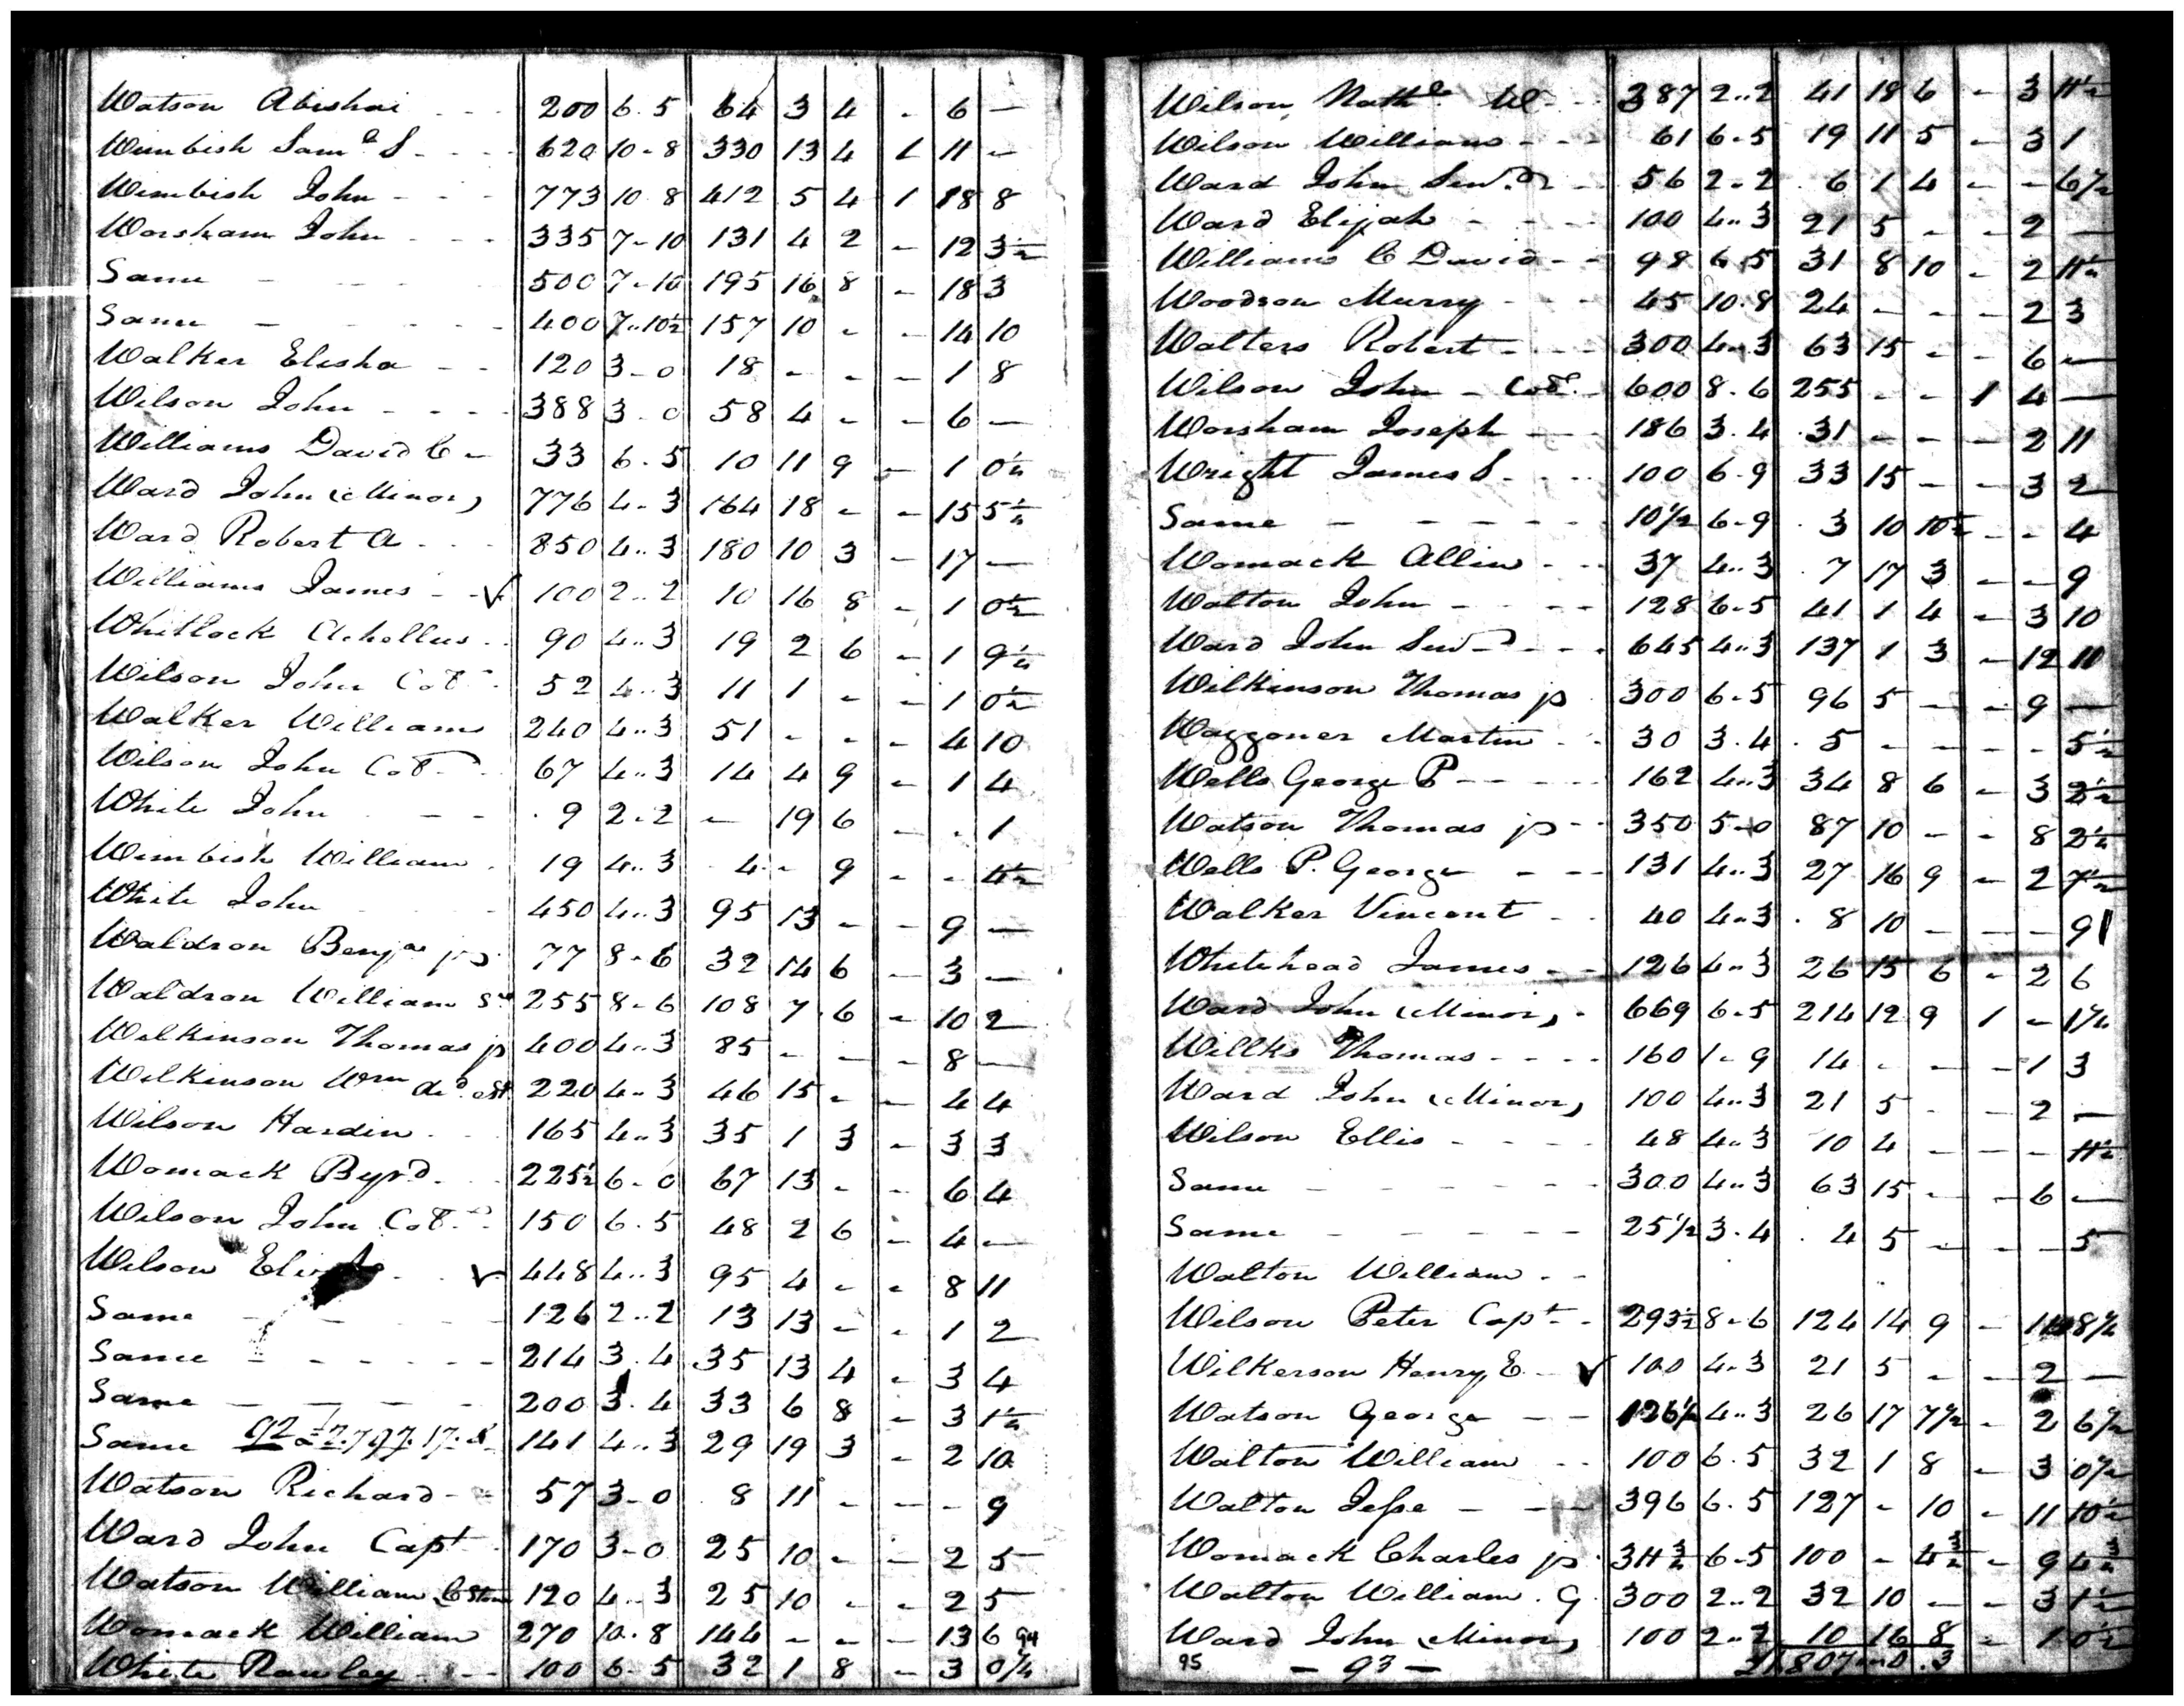 Watson Abishai - - 200 6. 5 64 3 4 - 6 -
Wimbish Saml S - - - 620 10. 8 330 13 4 1 11 -
Wimbish John - - - 773 10 8 412 5 4 1 18 8
Worsham John - - - 335 7-10 131 4 2 - 12 3½
Same - - - 500 7-10 195 16 8 - 18 3
Same - - - 400 7.10½ 157 10 - - 14 10
Walker Elisha - - 120 3-0 18 - - - 1 8
Wilson John - - - 388 3-0 58 4 - - 6 -
Williams David C - 33 6. 5 10 11 9 - 1 0¼
Ward John (Minor) 776 4. 3 164 18 - - 15 5¼
Ward Robert A - - 850 4.. 3 180 10 3 - 17 -
Williams James - - ✓ 100 2.. 2 10 16 8 - 1 0½
Whitlock Achellus - 90 4.. 3 19 2 6 - 1 9¼
Wilson John Colo 52 4.. 3 11 1 - - 1 0½
Walker William 240 4.. 3 51 - - - 4 10
Wilson John Colo 67 4.. 3 14 4 9 - 1 4
White John - - 9 2.. 2 - 19 6 - - 1
Wimbish William - 19 4.. 3 4 - 9 - - 4½
White John - 450 4.. 3 95 13 - - 9 -
Waldron Benja jr 77 8-6 32 14 6 - 3 -
Waldron William Sr 255 8-6 108 7 6 - 10 2
Wilkinson Thomas jr 400 4.. 3 85 - - - 8 -
Wilkinson Wm decd est 220 4.. 3 46 15 - - 4 4
Wilson Hardin - - 165 4.. 3 35 1 3 - 3 3
Womack Byrd - - 225½ 6-0 67 13 - - 6 4
Wilson John Colo 150 6. 5 48 2 6 - 4 -
Wilson - ✓ 448 4.. 3 95 4 - - 8 11
Same - - - 126 2.. 2 13 13 - - 1 2
Same - - - - 214 3. 4 35 13 4 - 3 4
Same - - - - 200 3. 4 33 6 8 - 3 1¼
Same 92 141 4.. 3 29 19 3 - 2 10
Watson Richard - - 57 3-0 8 11 - - - 9
Ward John Capt 170 3-0 25 10 - - 2 5
Watson William 120 4.. 3 25 10 - - 2 5
Womack William 270 10. 8 144 - - - 13 6
94
White Rawley - - 100 6. 5 32 1 8 - 3 0¼
Wilson Nathl - - 387 2..2 41 18 6 - 3 11½
Wilson William - - - 61 6.5 19 11 5 - 3 1
Ward John - 56 2.2 6 1 4 - - 6½
Ward Elijah - - - 100 4..3 21 5 - - 2 -
Williams C David - - 98 6.5 31 8 10 - 2 11½
Woodson Murry - - 45 10.8 24 - - - 2 3
Walters Robert - - - 300 4..3 63 15 - - 6 -
Wilson John - Colo - 600 8.6 255 - - 1 4 -
Worsham Joseph - - 186 3.4 31 - - - 2 11
Wright James S - - - 100 6.9 33 15 - - 3 2
Same - - - - - 10½ 6-9 3 10 10½ - - 4
Womack Allin - - - 37 4..3 7 17 3 - - 9
Walton John - - - - 128 6.5 41 1 4 - 3 10
Ward John - - - 645 4..3 137 1 3 - 12 11
Wilkinson Thomas jr 300 6.5 96 5 - - 9 -
Waggoner Martin - - 30 3.4 5 - - - - 5½
Wells George P - - - 162 4..3 34 8 6 - 3 2½
Watson Thomas jr - - 350 5-0 87 10 - - 8 2¼
Wells P. George - - 131 4..3 27 16 9 - 2 7½
Walker Vincent - - 40 4.3 8 10 - - - 9
Whitehead James - - 126 4..3 26 15 6 - 2 6
Ward John (Minor) - 669 6.5 214 12 9 1 - 1¼
Willks Thomas - - - 160 1-9 14 - - - 1 3
Ward John (Minor) 100 4..3 21 5 - - 2 -
Wilson Ellis - - - 48 4..3 10 4 - - - 11½
Same - - - - - 300 4..3 63 15 - - 6 -
Same - - - - - 25½ 3.4 4 5 - - - 5
Walton William - -
Wilson Peter Capt - - 293½ 8-6 124 14 9 -
Wilkerson Henry E - ✓ 100 4.3 21 5 - - 2 -
Watson George - - 126½ 4..3 26 17 7½ - 2 6½
Walton William - - 100 6.5 32 1 8 - 3 0½
Walton Jesse - - - 396 6.5 127 - 10 - 11 10½
Womack Charles jr 6-5 100 - - 9
Walton William . G. 300 2..2 32 10 - - 3 1½
Ward John (Minor) 100 2..2 10 16 8 - 1 0½
95 - 93 -